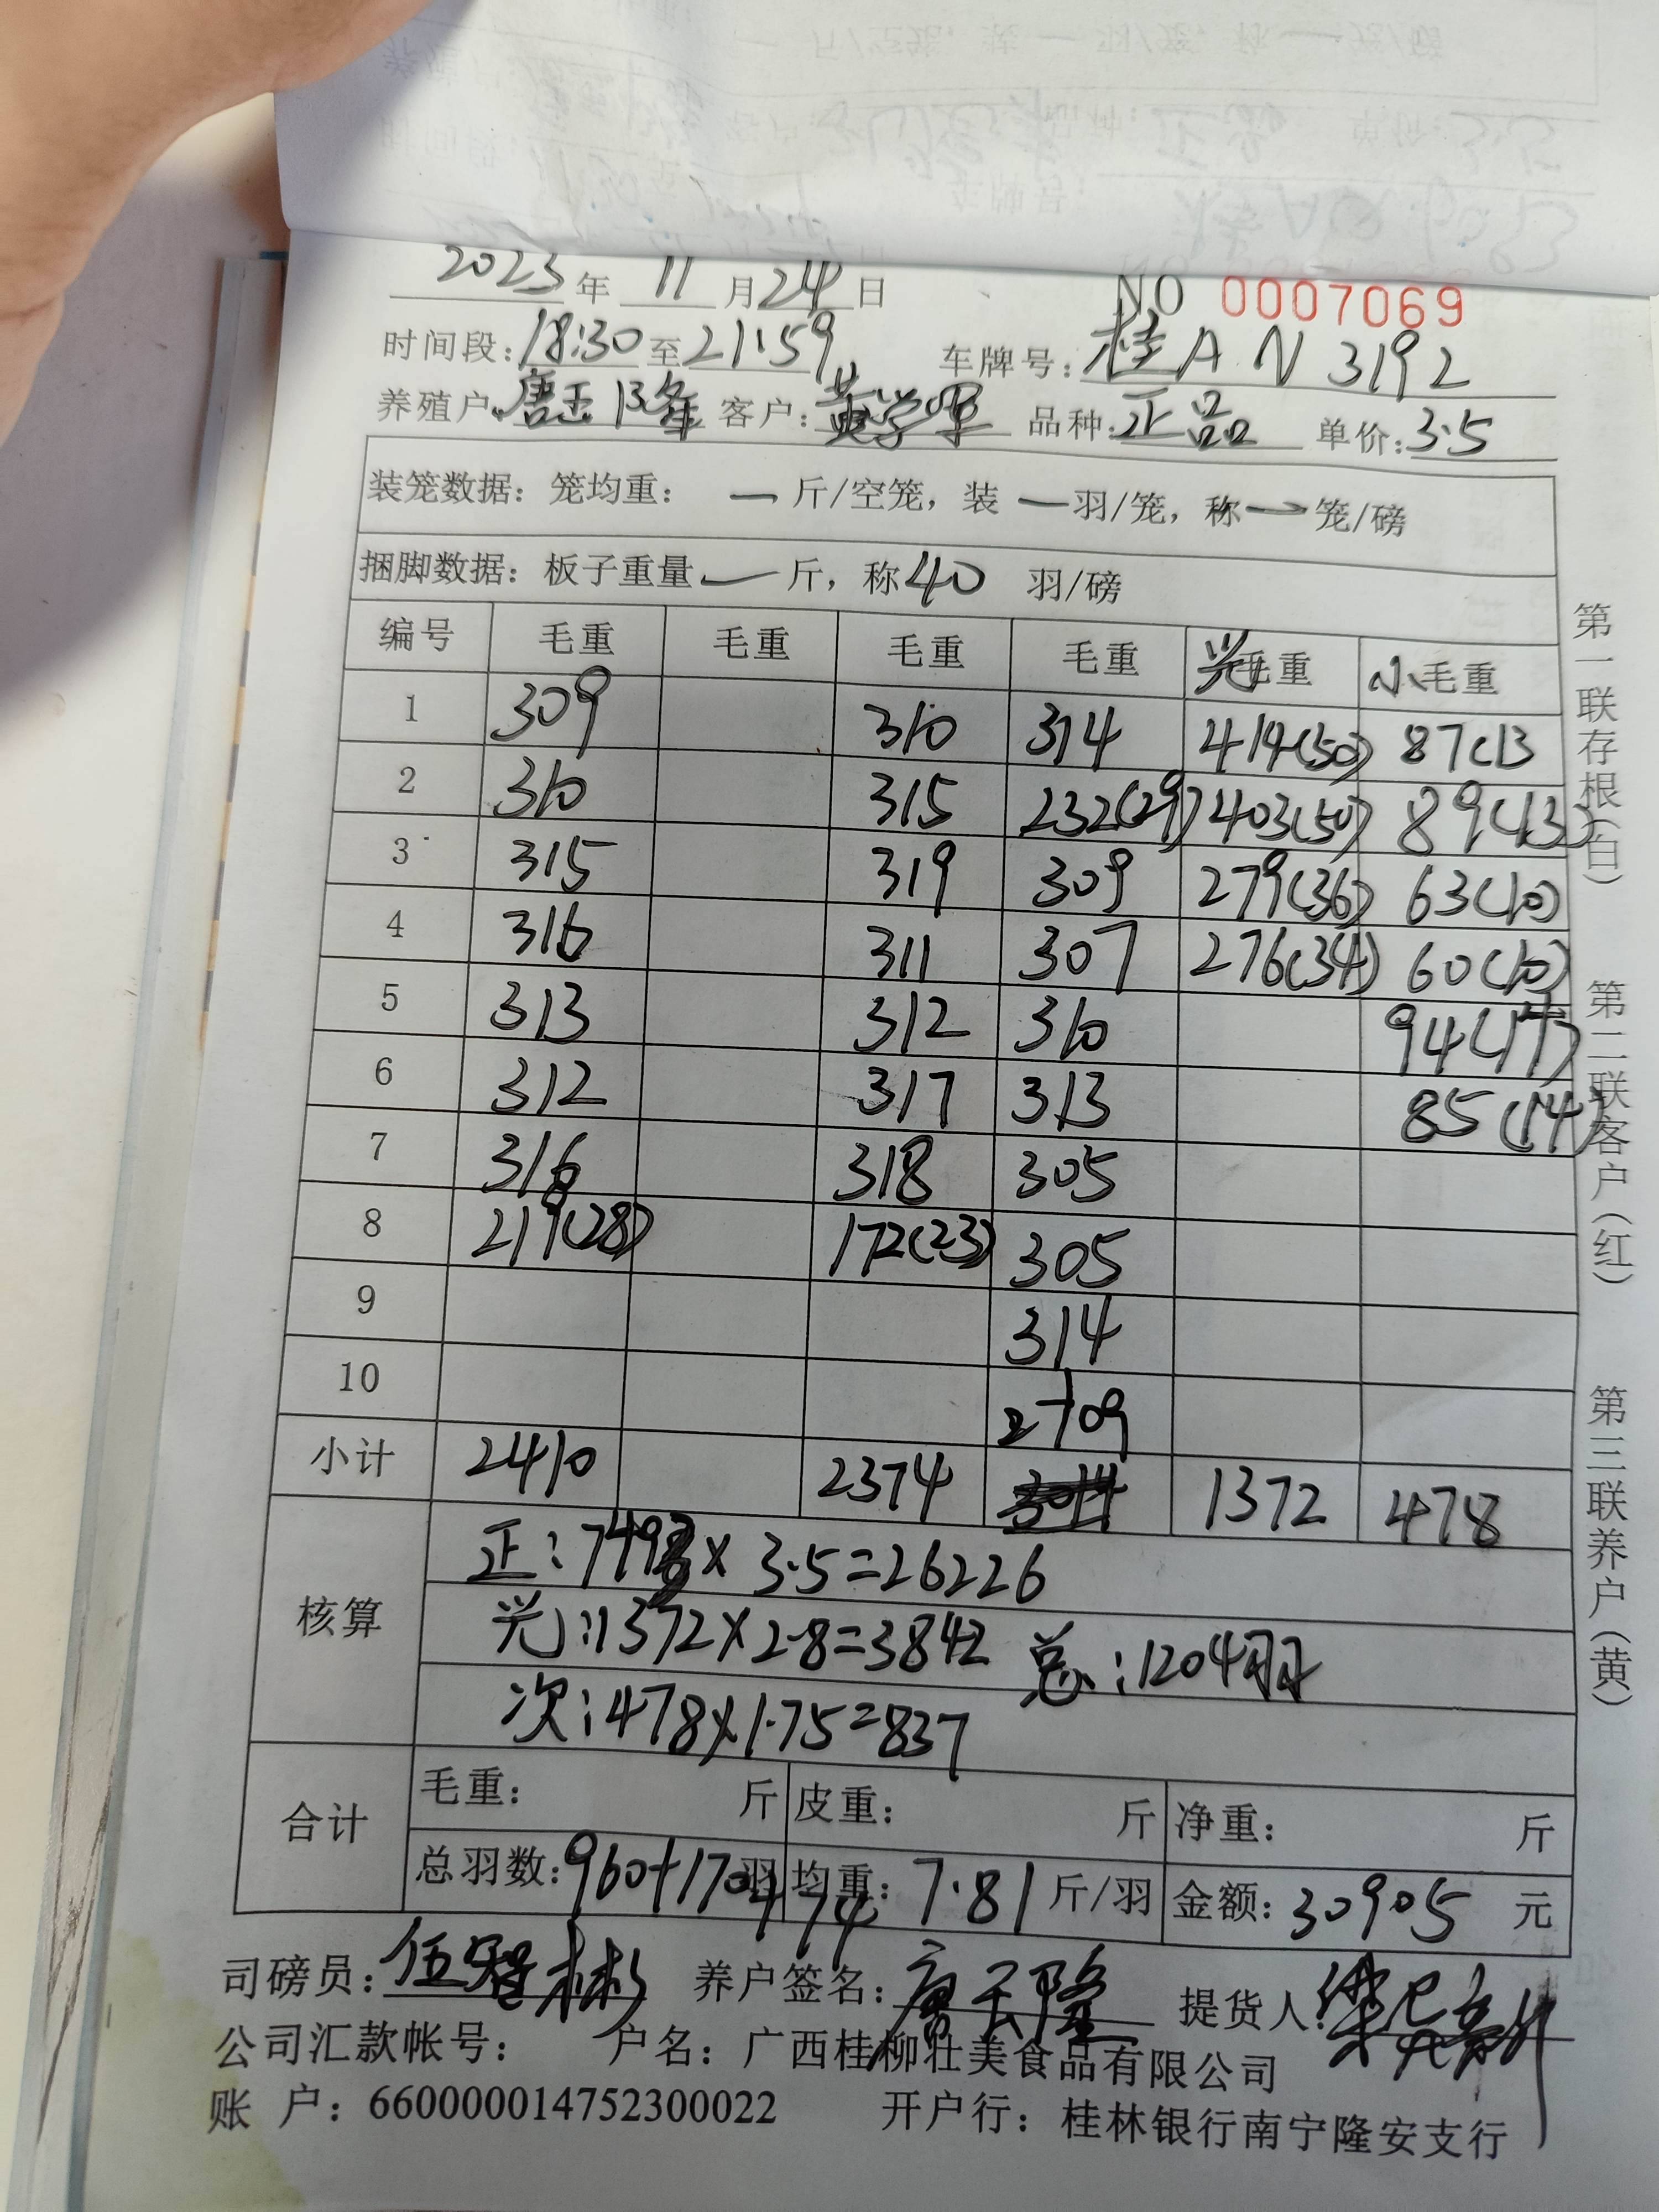 2023年 11月24日 NO 0007069
时间段:18:30至21:59 车牌号:桂AN3192
养殖户:唐玉隆 客户:黄学军 品种:正品 单价:3.5
装笼数据: 笼均重: 一 斤/空笼, 装 一 羽/笼, 称 一 笼/磅
捆脚数据: 板子重量 一 斤, 称40 羽/磅
编号 毛重 毛重 毛重 毛重 光毛重 小毛重
1 309 310 314 419(50) 87(13
2 310 315 232(29) 403(50) 89(13)
3 315 319 309 279(36) 63(10)
4 316 311 307 276(34) 60(10)
5 313 312 310 94(14)
6 312 317 313 85(14)
7 316 318 305
8 219(28) 172(23) 305
9 314
10 2709
小计 2410 2374 1372 478
核算
正:7493×3.5=26226
光:1372×2.8=3842 总:1204羽
次:478×1.75=837
合计
毛重: 斤 皮重: 斤 净重: 斤
总羽数:960+170+74 羽 均重:7.81 斤/羽 金额:30905 元
司磅员: 养户签名:唐玉隆 提货人:
公司汇款帐号: 户名:广西桂柳壮美食品有限公司
账 户:660000014752300022 开户行:桂林银行南宁隆安支行
第一联存根(白)
第二联客户(红)
第三联养户(黄)